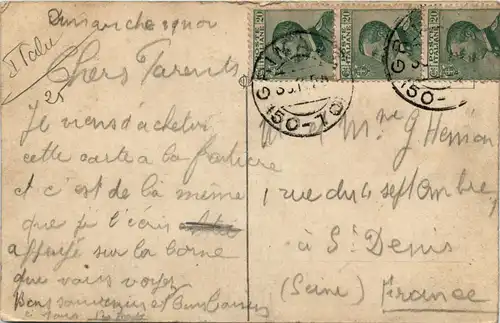 Dimanche 19 nov
Italie
Chers Parents
25
Je viens d'acheter
cette carte a la frontiere
et c'est de là même
que je l'écris
appuyé sur la borne
que vous voyez
Bons souvenirs et bons baisers
à tous
GRIMA
150-70
GR
150-
M et Mme G Henion
1 rue du 4 septembre
à St Denis
(Seine) France